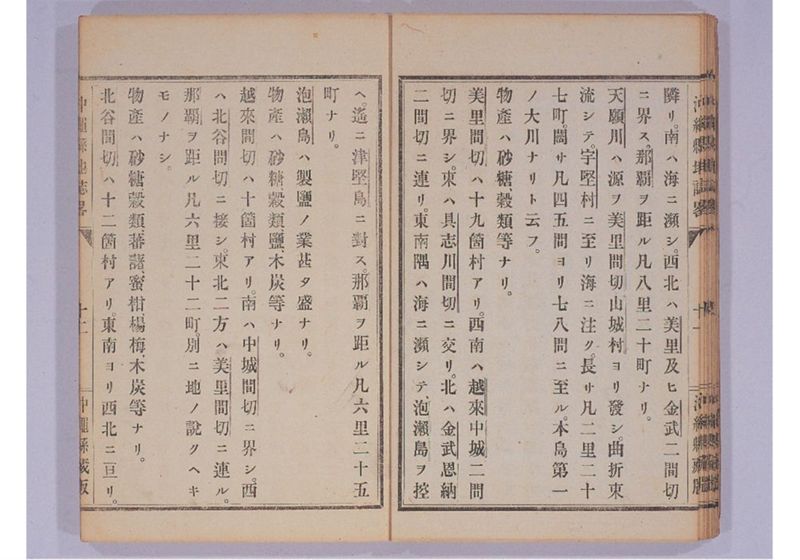 隣リ。南ハ海ニ瀕シ。西北ハ美里及ヒ金武二間切
ニ界ス。那覇ヲ距ル凡八里二十町ナリ。
天願川ハ源ヲ美里間切山城村ヨリ發シ。曲折東
流シテ。宇堅村ニ至リ海ニ注ク。長サ凡二里二十
七町闊サ凡四五間ヨリ七八間ニ至ル。本島第一
ノ大川ナリト云フ。
物產ハ砂糖、穀類等ナリ。
美里間切ハ十九箇村アリ。西南ハ越來中城二間
切ニ界シ。東ハ具志川間切ニ交リ。北ハ金武恩納
二間切ニ連リ。東南隅ハ海ニ瀕シテ、泡瀨島ヲ控
ヘ。遙ニ津堅島ニ對ス。那覇ヲ距ル凡六里二十五
町ナリ。
泡瀨島ハ製鹽ノ業甚タ盛ナリ。
物產ハ砂糖、穀類、鹽、木炭等ナリ。
越來間切ハ十箇村アリ。南ハ中城間切ニ界シ。西
ハ北谷間切ニ接シ。東北二方ハ美里間切ニ連ル。
那覇ヲ距ル凡六里二十二町。別ニ地ノ說クヘキ
モノナシ。
物產ハ砂糖、穀類、蕃藷、蜜柑、楊梅、木炭等ナリ。
北谷間切ハ十二箇村アリ。東南ヨリ西北ニ亘リ。
沖繩縣地誌畧
十二
沖繩縣藏版